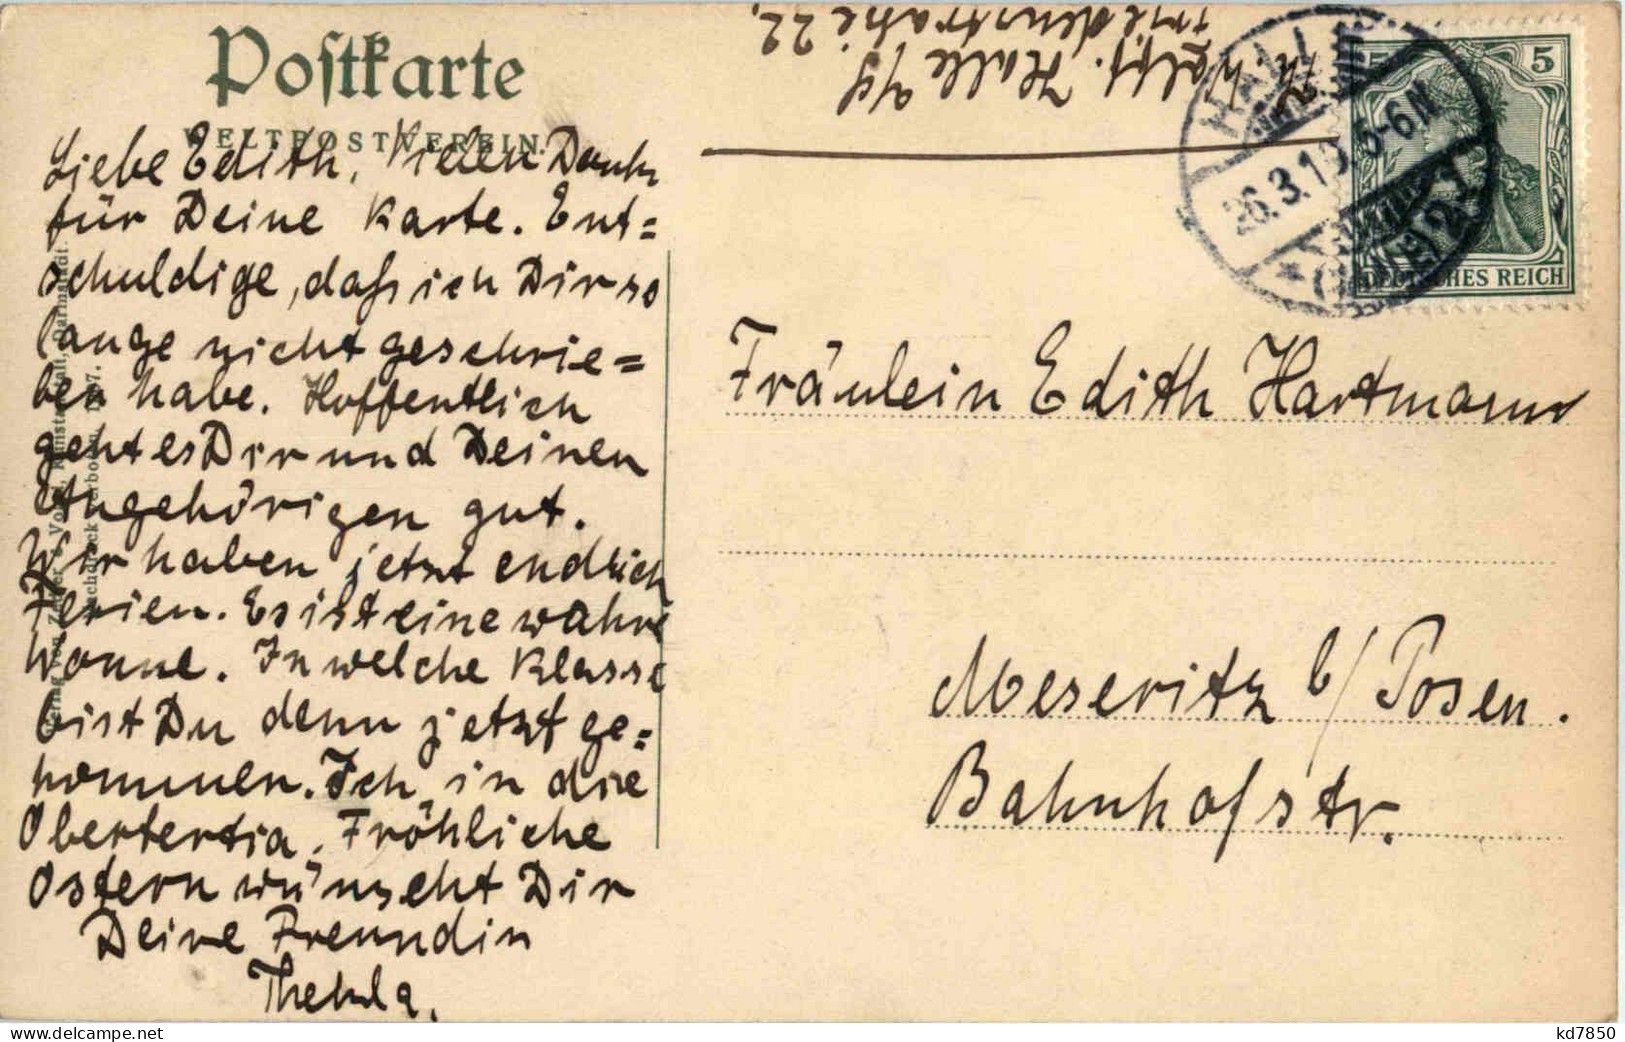 Postkarte
WELTPOSTVEREIN.
Liebe Edith, Vielen Dank
für Deine Karte. Ent=
schuldige, daß ich Dir so
lange nicht geschrie=
ben habe. Hoffentlich
geht es Dir und Deinen
Angehörigen gut.
Wir haben jetzt endlich
Ferien. Es ist eine wahre
Wonne. In welche Klasse
bist Du denn jetzt ge=
kommen. Ich, in die
Obertertia. Fröhliche
Ostern wünscht Dir
Deine Freundin
Thekla.
Halle a/S
22.
HALLE
26.3.10. 5-6N
5
DEUTSCHES REICH
Fräulein Edith Hartmann
Meseritz b/Posen.
Bahnhofstr.
kd7850